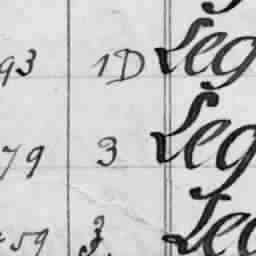 93 1D Leg
79 3 Leg
59 3. Leg